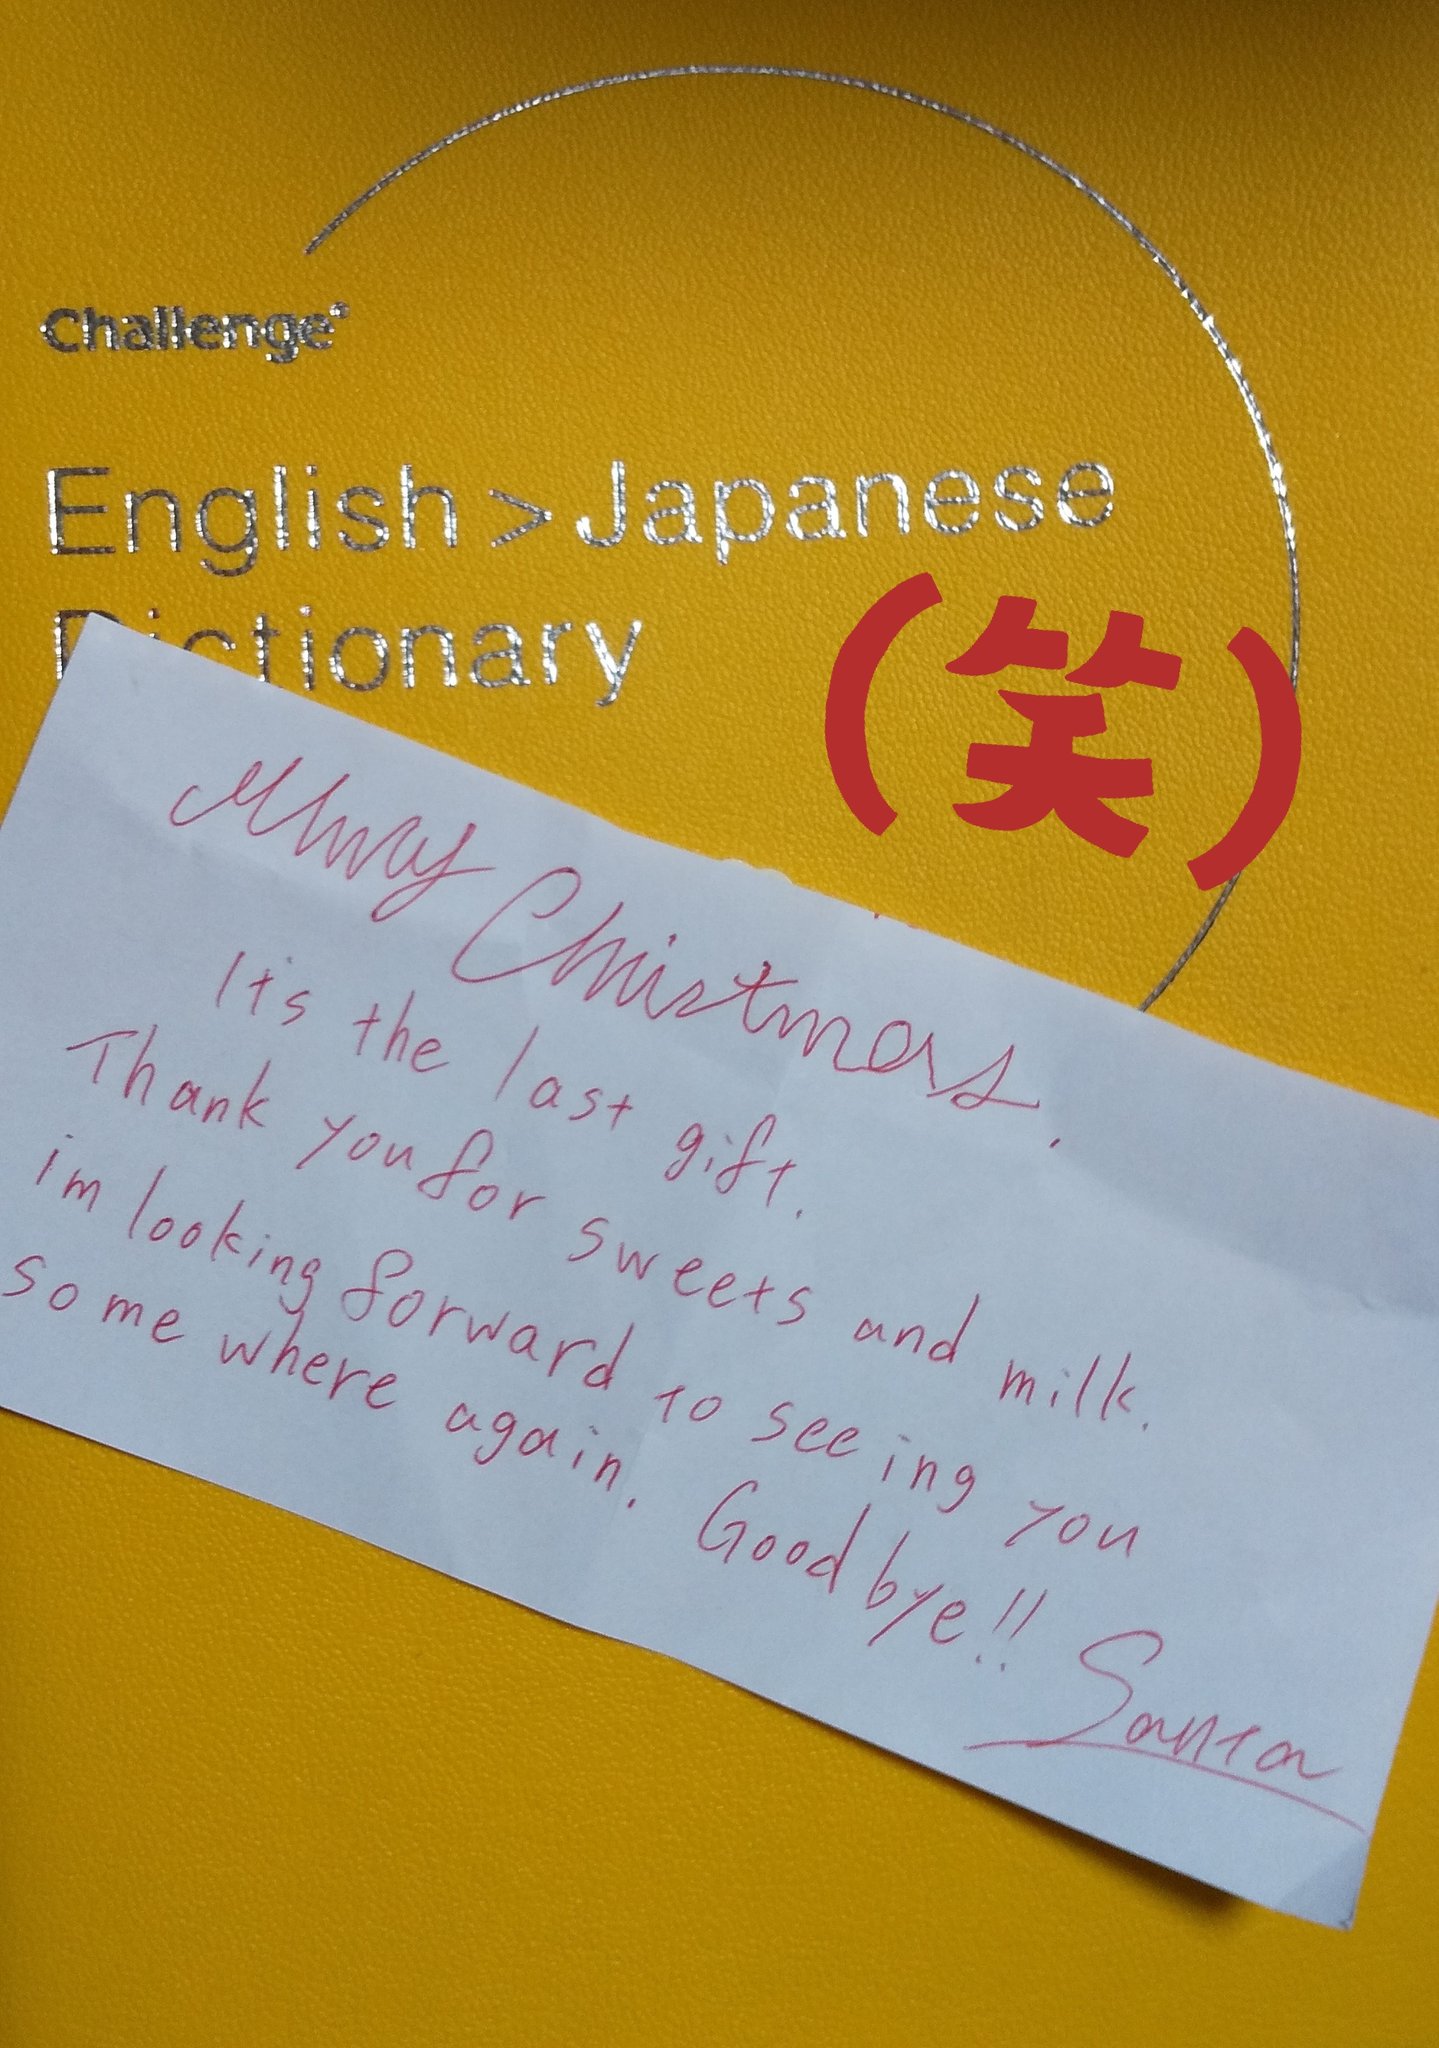 Challenge®
English > Japanese
Dictionary
(笑)
Merry Christmas.
It's the last gift.
Thank you for sweets and milk.
im looking forward to seeing you
some where again. Good bye!!
Santa